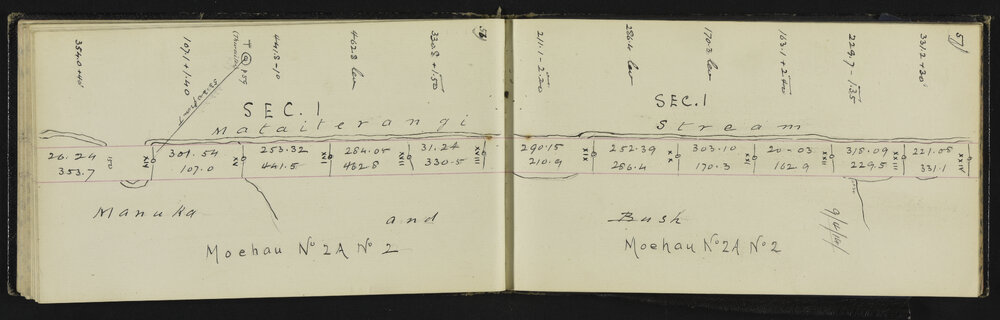 354.0 + 40'
107.1 + 1.40
441.5 - 10
462.8 lev
330.8 + 1.50
SEC. I
Mataiterangi
26.24
353.7
XIV
301.54
107.0
XV
253.32
441.5
XVI
284.05
462.8
XVII
31.24
330.5
XVIII
Manuka and
Moehau No 2A No 2
57
211.1 - 2.20
286.4 lev
170.3 lev
163.1 + 2°40
229.7 - 1.35
331.2 + 30'
SEC. I
Stream
290.15
210.9
XIX
252.39
286.4
XX
303.10
170.3
XXI
20-03
162.9
XXII
315.09
229.5
XXIII
221.05
331.1
XXIV
Bush
Moehau No 2A No 2